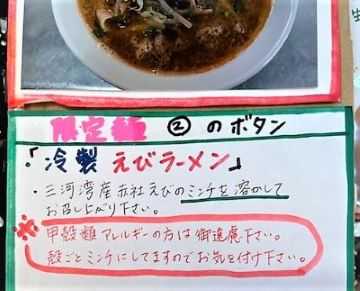 限定麺 ② のボタン
「冷製 えびラーメン」
・三河湾産赤社えびのミンチを溶かして
お召し上がり下さい。
※
甲殻類アレルギーの方は御遠慮下さい。
殻ごとミンチにしてますのでお気を付け下さい。